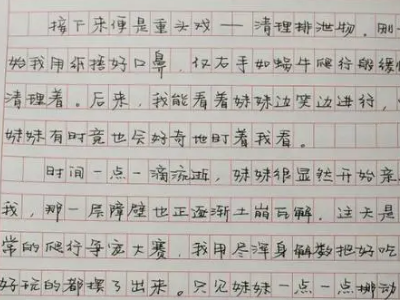 接下来便是重头戏——清理排泄物。刚一
始我用纸捂好口鼻，仅右手如蜗牛爬行般缓慢
清理着。后来，我能看着妹妹边笑边进行，
妹妹有时竟也会好奇地盯着我看。
时间一点一滴流逝，妹妹很显然开始亲
我，那一层障壁也正逐渐土崩瓦解，这天是
常的爬行争宠大赛，我用尽浑身解数把好吃
好玩的都摆了出来。只见妹妹一点一点挪动